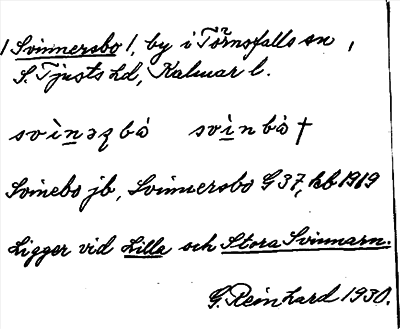 /Svinnersbo/, by i Törnsfalls sn,
S. Tjusts hd, Kalmar l.
svìnəʀbå svìnbå †
Svinebo jb, Svinnersbo G 37, kb 1919
Ligger vid Lilla och Stora Svinnarn.
G. Reinhard 1930.